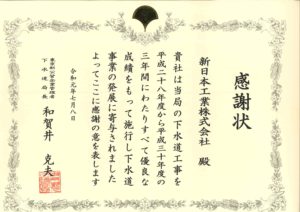 感謝状
新日本工業株式会社 殿
貴社は当局の下水道工事を
平成二十八年度から平成三十年度の
三年間にわたりすべて優良な
成績をもって施行し下水道
事業の発展に寄与されました
よってここに感謝の意を表します
令和元年七月八日
下水道局長
和賀井 克夫